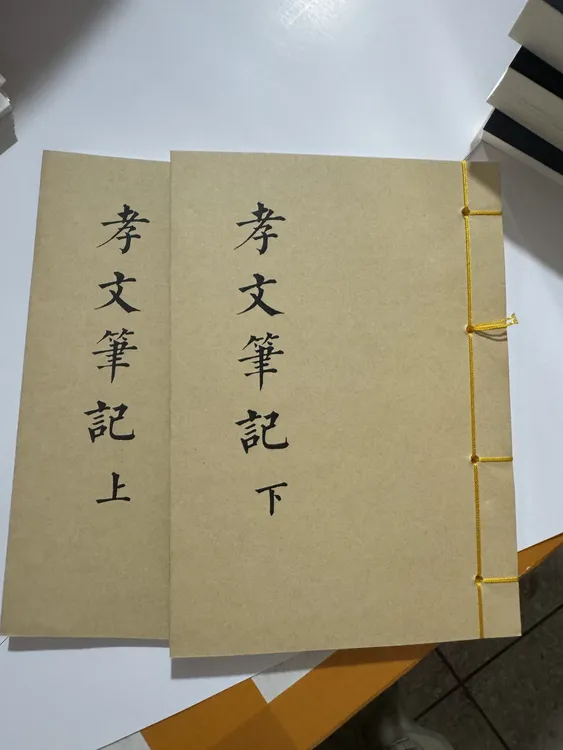 孝文筆記上
孝文筆記下